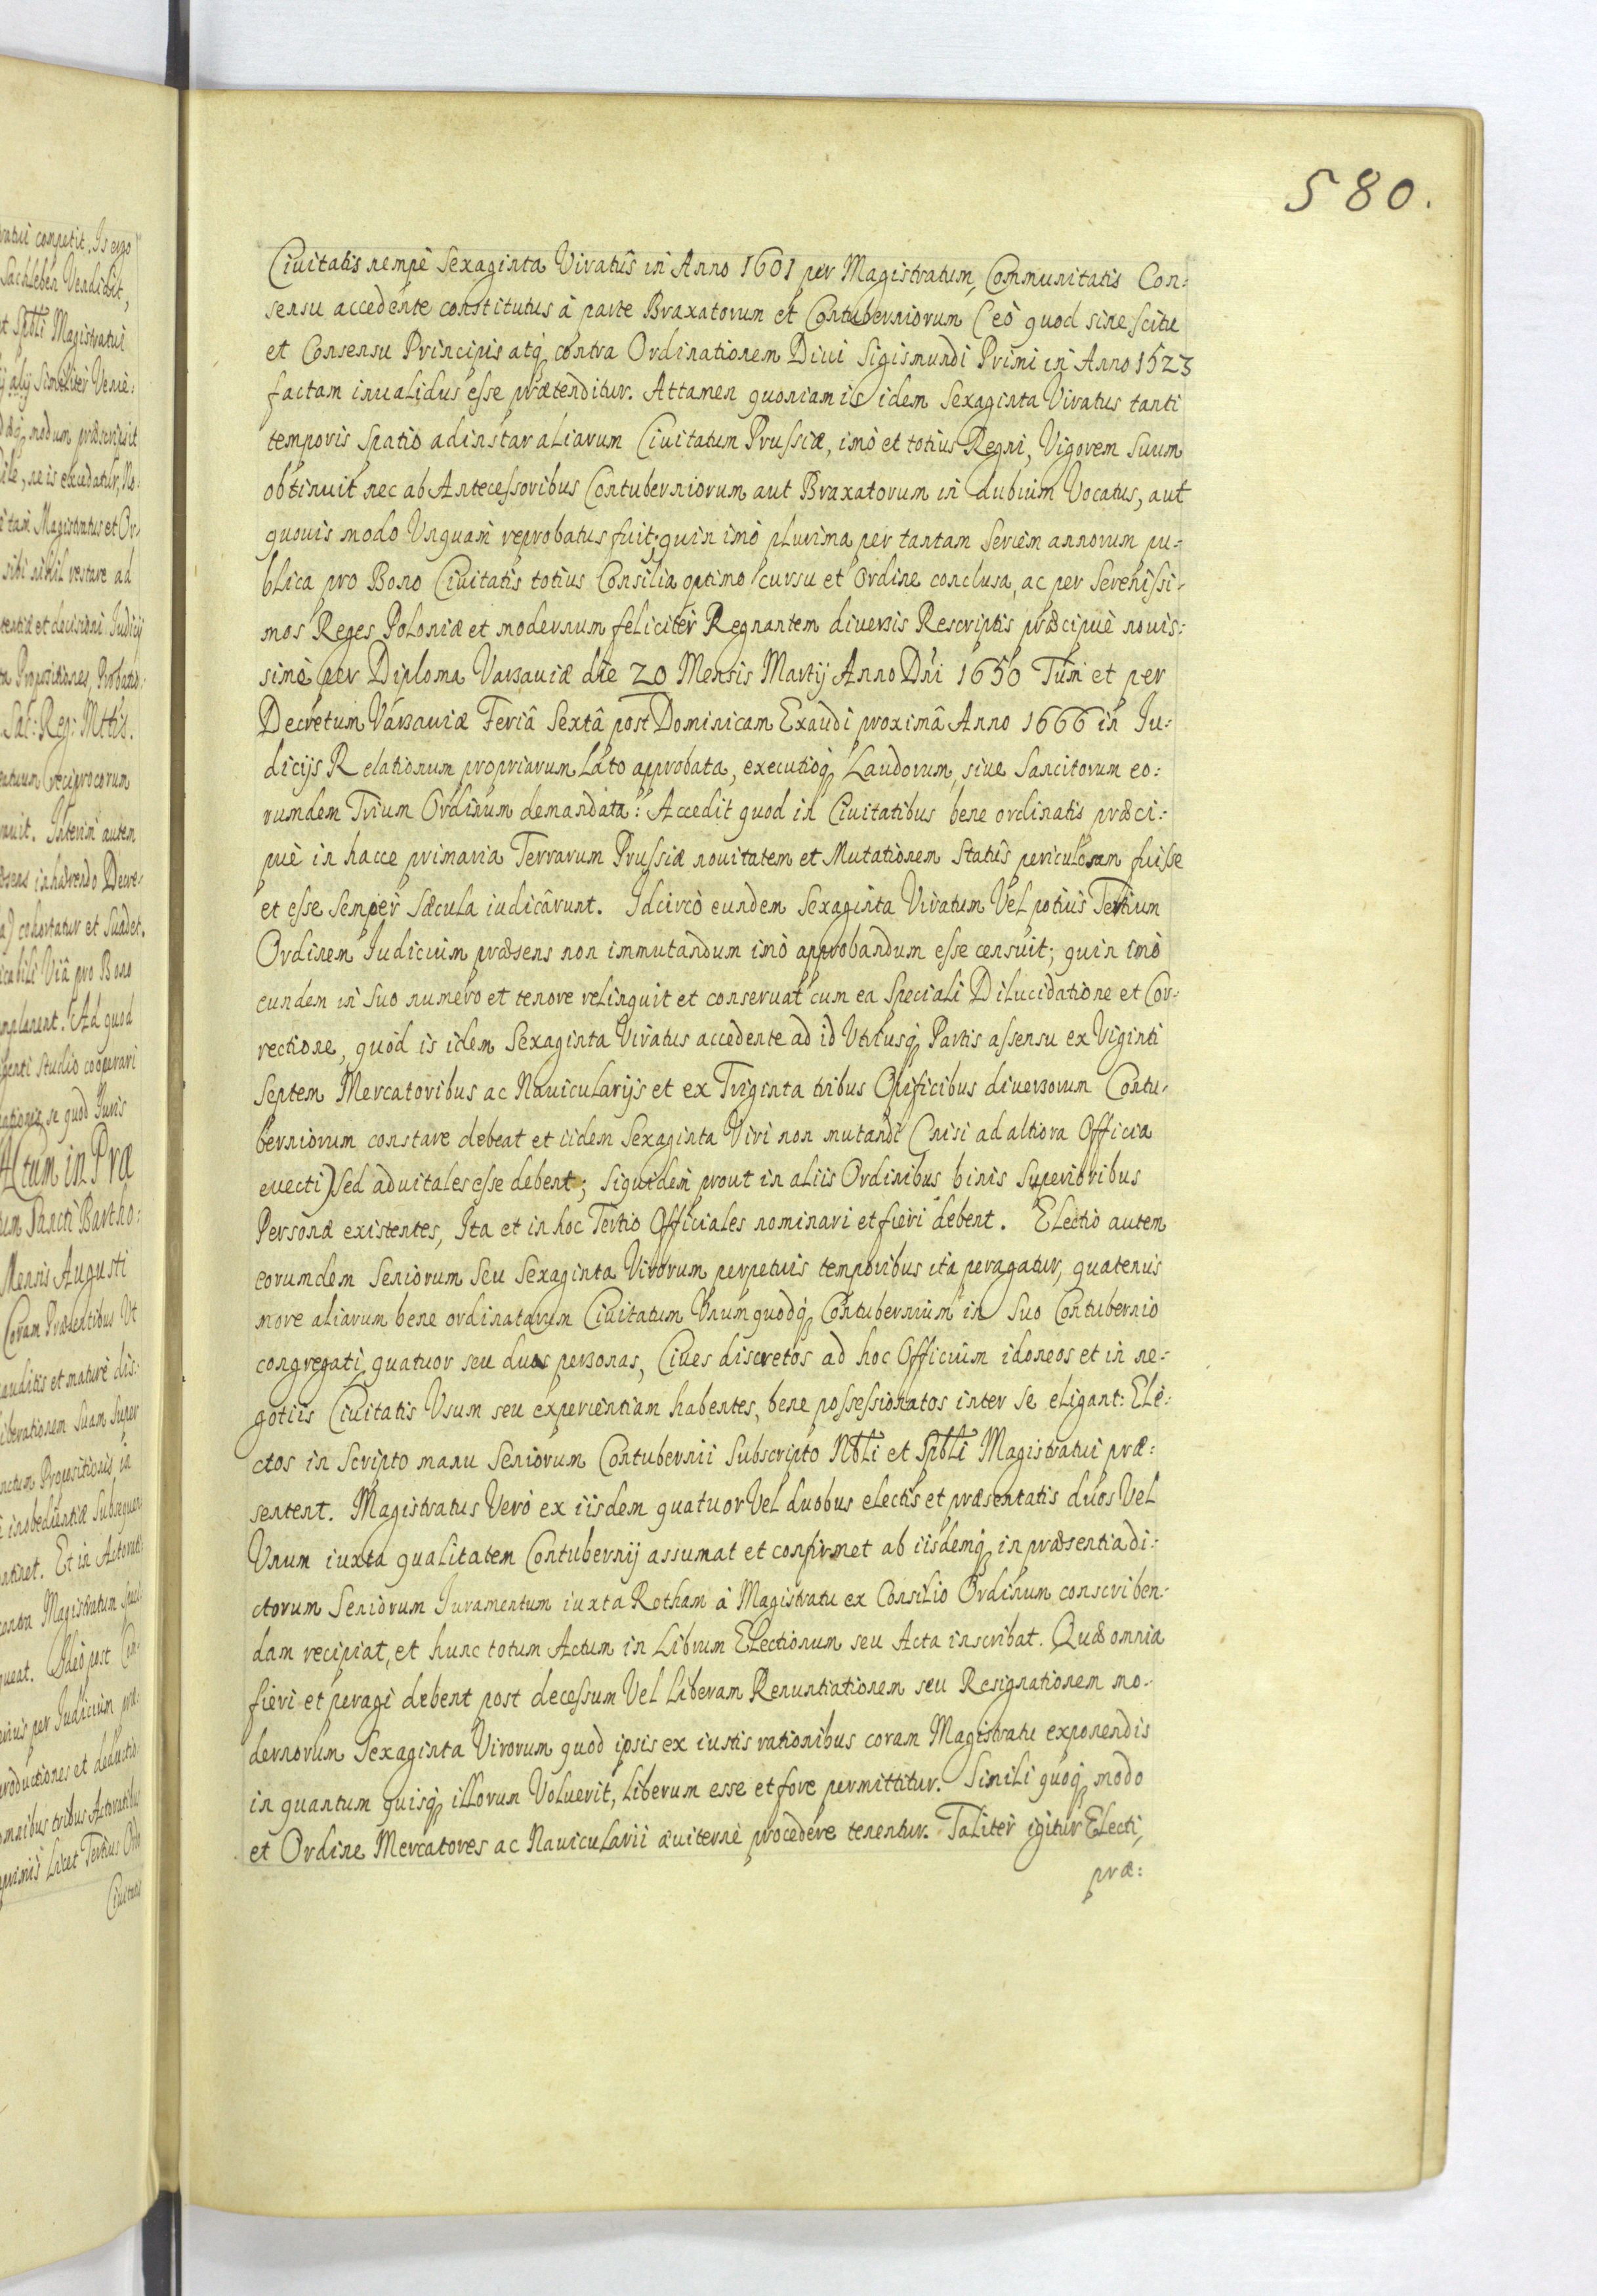 580.
Ciuitatis nempè Sexaginta Viratûs in Anno 1601 per Magistratum, Communitatis Con:
sensu accedente constitutus à parte Braxatorum et Contuberniorum (eò quod sine scitu
et Consensu Principis atq; contra Ordinationem Diui Sigismundi Primi in Anno 1523
factam inualidus esse prætenditur. Attamen quoniam is idem Sexaginta Viratus tanti
temporis spatio ad instar aliarum Ciuitatum Prussiæ, imò et totius Regni, Vigorem suum
obtinuit nec ab Antecessoribus Contuberniorum aut Braxatorum in dubium Vocatus, aut
quouis modo Vnquam reprobatus fuit; quin imò plurima per tantam Seriem annorum pu:
blica pro Bono Ciuitatis totius Consilia optimo cursu et Ordine conclusa, ac per Serenissi:
mos Reges Poloniæ et modernum feliciter Regnantem diuersis Rescriptis præcipuè nouis:
simè per Diploma Varsauiæ die 20 Mensis Martij Anno Dni 1650 Tum et per
Decretum Varsauiæ Feriâ Sextâ post Dominicam Exaudi proximâ Anno 1666 in Iu:
dicijs Relationum propriarum Lato approbata, executioq; Laudorum, siue Sancitorum eo:
rumdem Trium Ordinum demandata: Accedit quod in Ciuitatibus bene ordinatis præci:
puè in hacce primaria Terrarum Prussiæ nouitatem et Mutationem Statûs periculosam fuisse
et esse semper sæcula iudicârunt. Idcircò eundem Sexaginta Viratum Vel potius Tertium
Ordinem Iudicium præsens non immutandum imò approbandum esse censuit; quin imò
eundem in suo numero et tenore relinquit et conseruat cum ea Speciali Dilucidatione et Cor:
rectione, quod is idem Sexaginta Viratus accedente ad id Vtriusq; Partis assensu ex Viginti
Septem Mercatoribus ac Nauicularijs et ex Triginta tribus Opificibus diuersorum Contu:
berniorum constare debeat et iidem Sexaginta Viri non mutandi (nisi ad altiora Officia
euecti) sed aduitales esse debent; siquidem prout in aliis Ordinibus binis Superioribus
Personæ existentes, Ita et in hoc Tertio Officiales nominari et fieri debent. Electio autem
eorumdem Seniorum seu Sexaginta Virorum perpetuis temporibus ita peragatur, quatenus
more aliarum bene ordinatarum Ciuitatum Vnumquodq; Contubernium in suo Contubernio
congregati, quatuor seu duas personas, Ciues discretos ad hoc Officium idoneos et in ne:
gotiis Ciuitatis Vsum seu experientiam habentes, bene possessionatos inter se eligant: Ele:
ctos in scripto manu Seniorum Contubernii Subscripto Nbli et Spbli Magistratui præ:
sentent. Magistratus Verò ex iisdem quatuor Vel duobus electis et præsentatis duos Vel
Vnum iuxta qualitatem Contubernij assumat et confirmet ab iisdemq; in præsentia di:
ctorum Seniorum Iuramentum iuxta Rotham à Magistratu ex Consilio Ordinum conscriben:
dam recipiat, et hunc totum Actum in Librum Electionum seu Acta inscribat. Quæ omnia
fieri et peragi debent post decessum Vel Liberam Renuntiationem seu Resignationem mo:
dernorum Sexaginta Virorum quod ipsis ex iustis rationibus coram Magistratu exponendis
in quantum quisq; illorum Voluerit, Liberum esse et fore permittitur. Simili quoq; modo
et Ordine Mercatores ac Nauicularii æuiternè procedere tenentur. Taliter igitur Electi,
præ: